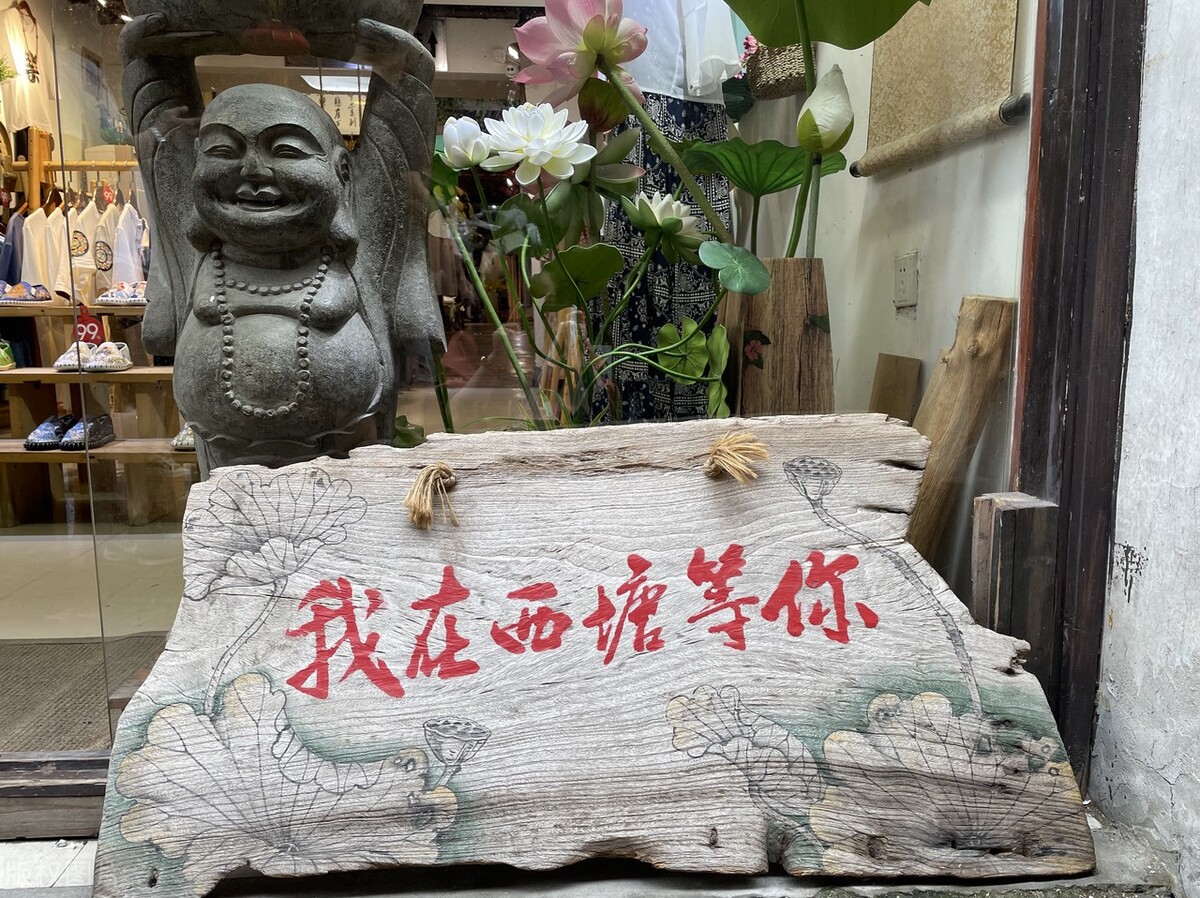 我在西塘等你
99